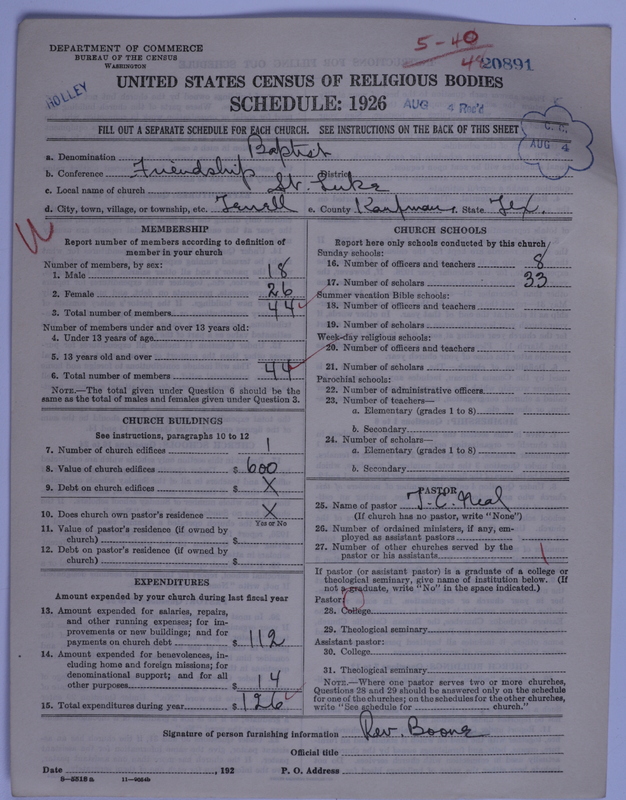 DEPARTMENT OF COMMERCE
BUREAU OF THE CENSUS
WASHINGTON
5-40
20891
HOLLEY
UNITED STATES CENSUS OF RELIGIOUS BODIES
SCHEDULE: 1926
AUG 4 Rec'd
FILL OUT A SEPARATE SCHEDULE FOR EACH CHURCH. SEE INSTRUCTIONS ON THE BACK OF THIS SHEET
AUG 4
a. Denomination Baptist
b. Conference Friendship District
c. Local name of church St. Luke
d. City, town, village, or township, etc. Terrell e. County Kaufman f. State Tex.
MEMBERSHIP
Report number of members according to definition of
member in your church
Number of members, by sex:
1. Male 18
2. Female 26
3. Total number of members 44
Number of members under and over 13 years old:
4. Under 13 years of age
5. 13 years old and over
6. Total number of members 44
NOTE.—The total given under Question 6 should be the
same as the total of males and females given under Question 3.
CHURCH BUILDINGS
See instructions, paragraphs 10 to 12
7. Number of church edifices 1
8. Value of church edifices $ 600
9. Debt on church edifices $ X
10. Does church own pastor's residence X
Yes or No
11. Value of pastor's residence (if owned by
church) $
12. Debt on pastor's residence (if owned by
church) $
EXPENDITURES
Amount expended by your church during last fiscal year
13. Amount expended for salaries, repairs,
and other running expenses; for im-
provements or new buildings; and for
payments on church debt $ 112
14. Amount expended for benevolences, in-
cluding home and foreign missions; for
denominational support; and for all
other purposes $ 14
15. Total expenditures during year $ 126
CHURCH SCHOOLS
Report here only schools conducted by this church
Sunday schools:
16. Number of officers and teachers 8
17. Number of scholars 33
Summer vacation Bible schools:
18. Number of officers and teachers
19. Number of scholars
Week-day religious schools:
20. Number of officers and teachers
21. Number of scholars
Parochial schools:
22. Number of administrative officers
23. Number of teachers—
a. Elementary (grades 1 to 8)
b. Secondary
24. Number of scholars—
a. Elementary (grades 1 to 8)
b. Secondary
PASTOR
25. Name of pastor J. C. Neal
(If church has no pastor, write "None")
26. Number of ordained ministers, if any, em-
ployed as assistant pastors
27. Number of other churches served by the
pastor or his assistants
If pastor (or assistant pastor) is a graduate of a college or
theological seminary, give name of institution below. (If
not a graduate, write "No" in the space indicated.)
Pastor:
28. College
29. Theological seminary
Assistant pastor:
30. College
31. Theological seminary
NOTE.—Where one pastor serves two or more churches,
Questions 28 and 29 should be answered only on the schedule
for one of the churches; on the schedules for the other churches,
write "See schedule for church."
Signature of person furnishing information Rev. Boone
Official title
Date , 192 P. O. Address
8-5518 a